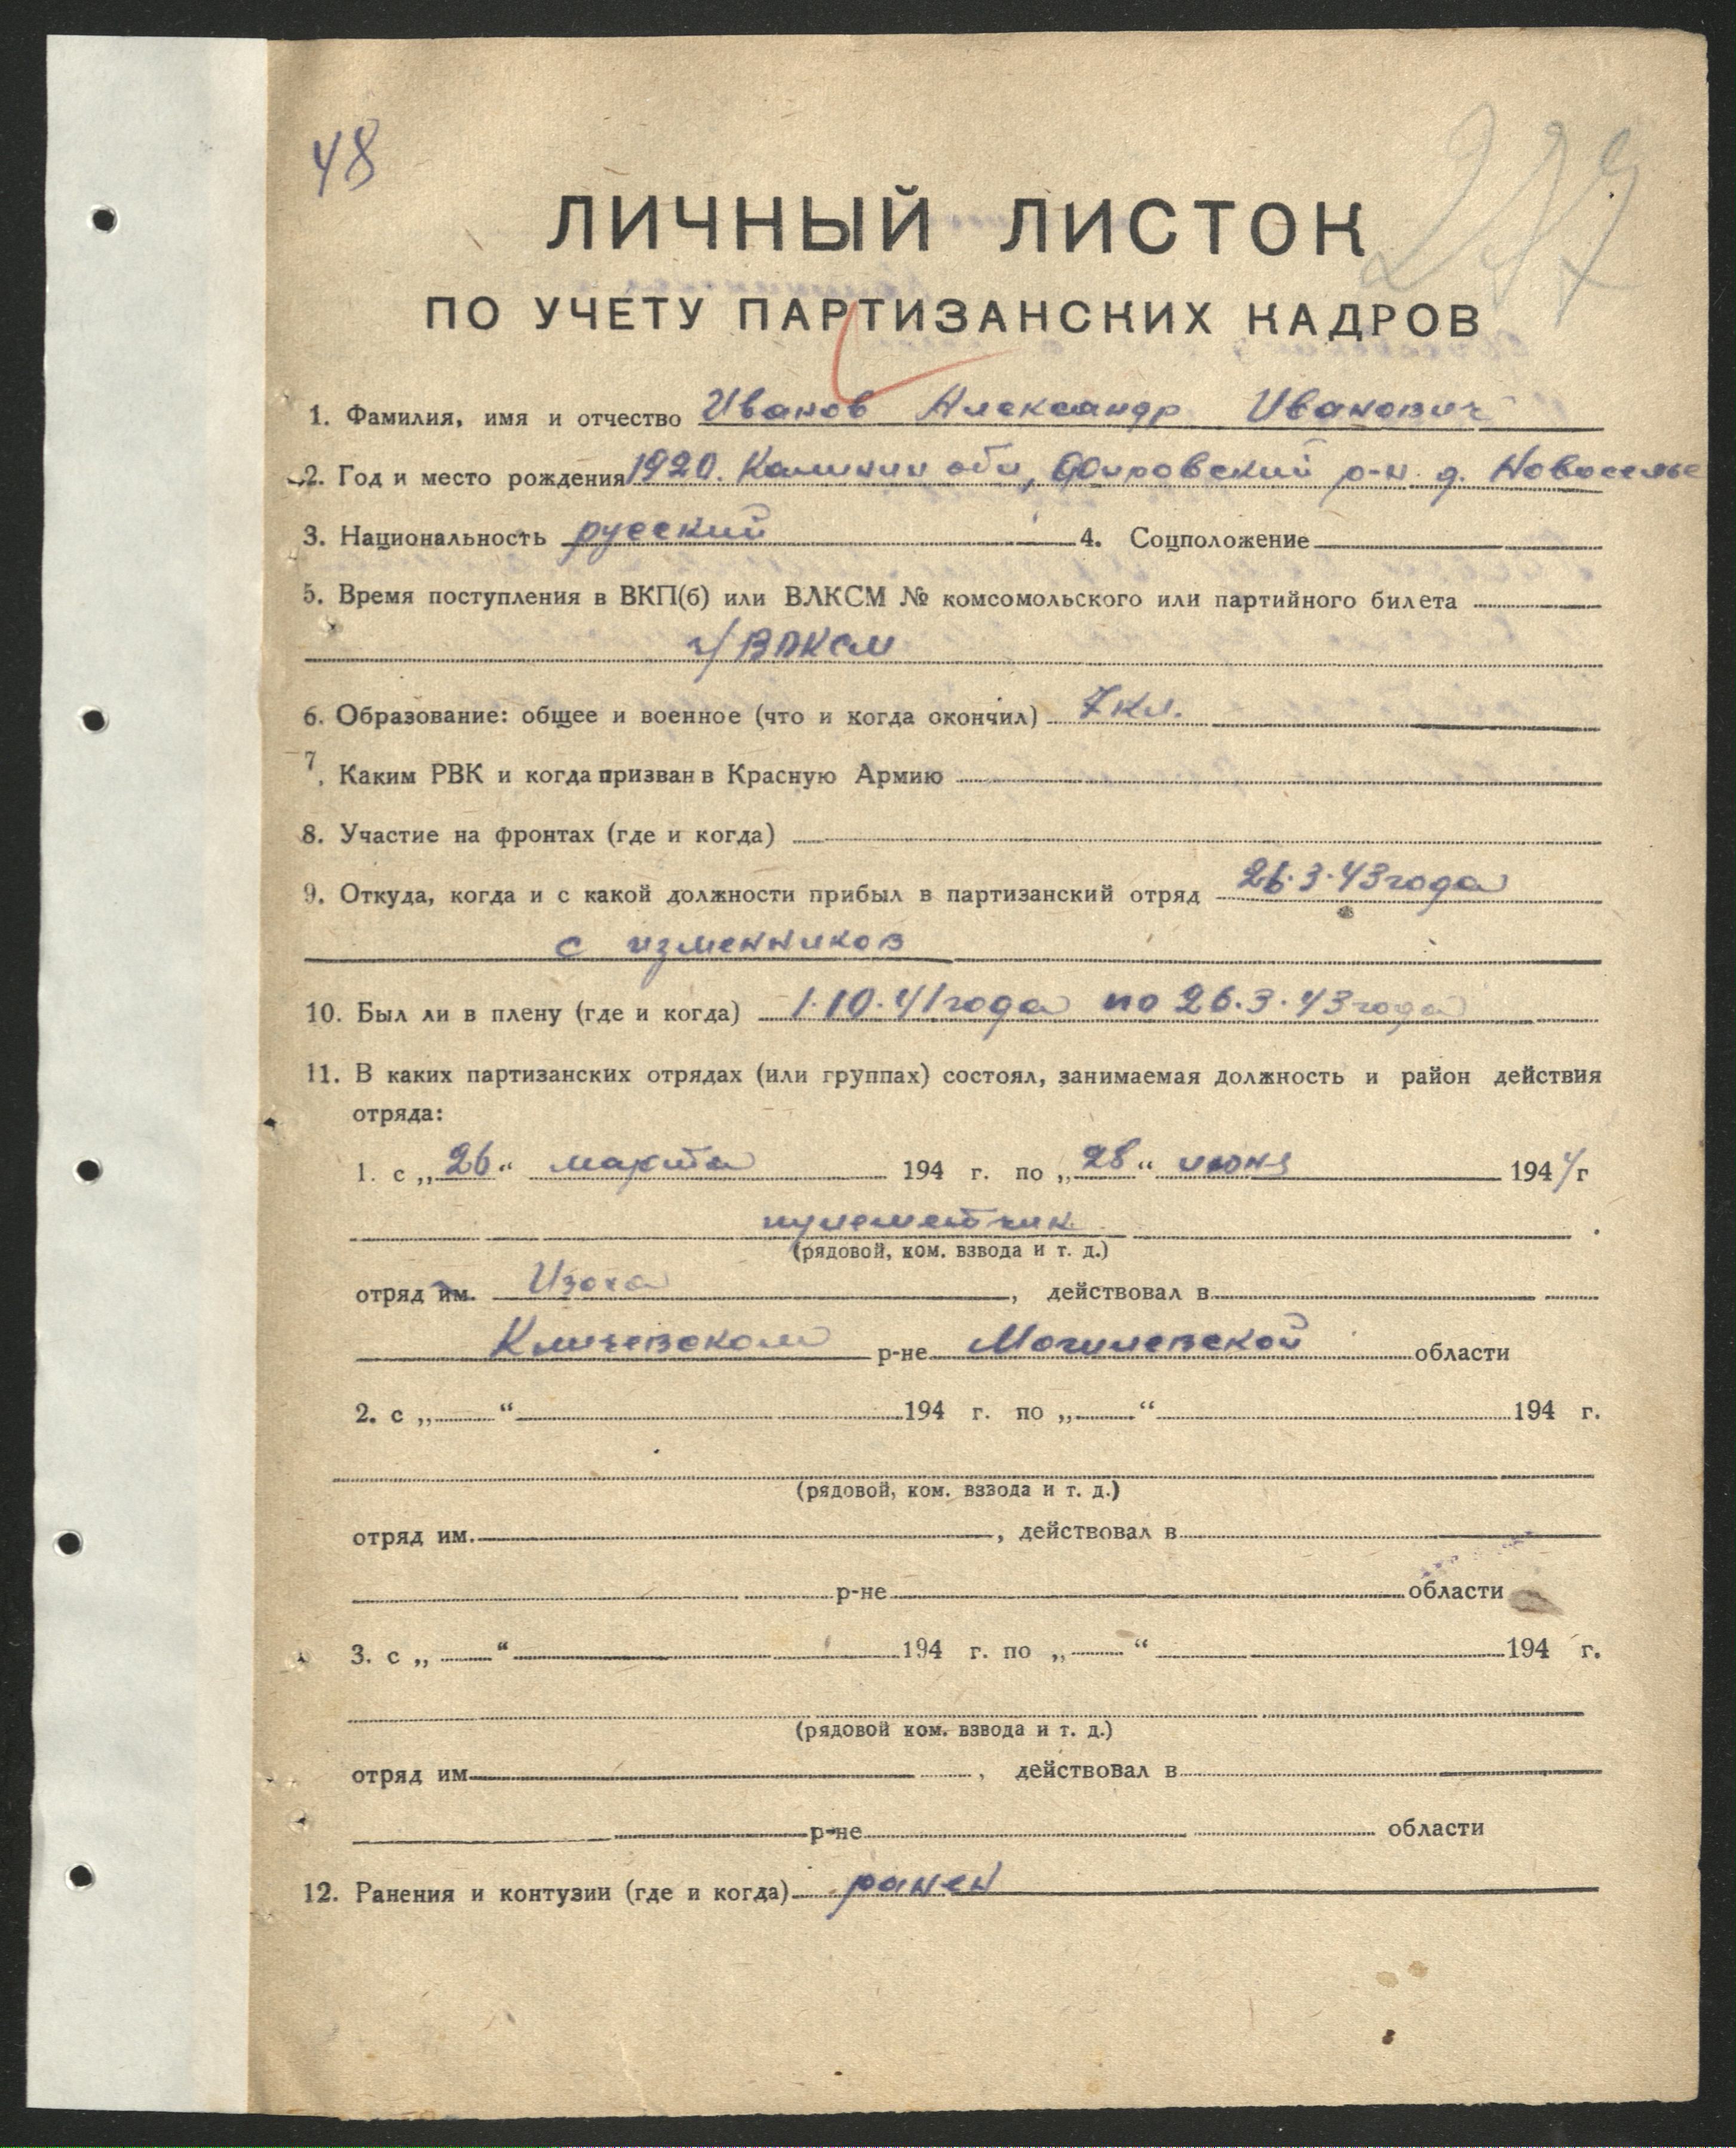 48
ЛИЧНЫЙ ЛИСТОК
ПО УЧЕТУ ПАРТИЗАНСКИХ КАДРОВ
1. Фамилия, имя и отчество Иванов Александр Иванович
2. Год и место рождения 1920. Калинин обл, р-н. д. Новоселье
3. Национальность русский 4. Соцположение
5. Время поступления в ВКП(б) или ВЛКСМ № комсомольского или партийного билета
ч/ВЛКСМ
6. Образование: общее и военное (что и когда окончил) 7 кл.
7. Каким РВК и когда призван в Красную Армию
8. Участие на фронтах (где и когда)
9. Откуда, когда и с какой должности прибыл в партизанский отряд 26.3.43 года
с изменников
10. Был ли в плену (где и когда) 1.10.41 года по 26.3.43 года
11. В каких партизанских отрядах (или группах) состоял, занимаемая должность и район действия
отряда:
1. с „26“ марта 194 г. по „28“ июня 1944 г
пулеметчик
(рядовой, ком. взвода и т. д.)
отряд им. Изоха, действовал в
Кличевском р-не Могилевской области
2. с „ “ 194 г. по „ “ 194 г.
(рядовой, ком. взвода и т. д.)
отряд им. , действовал в
р-не области
3. с „ “ 194 г. по „ “ 194 г.
(рядовой ком. взвода и т. д.)
отряд им , действовал в
р-не области
12. Ранения и контузии (где и когда) ранен